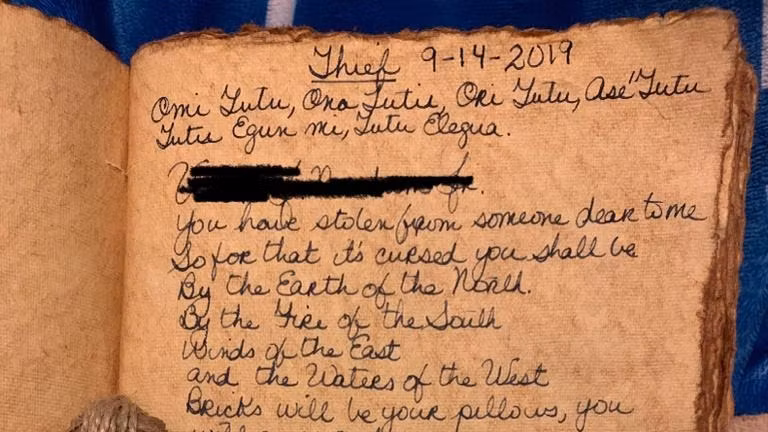 Thief 9-14-2019
Omi Tutu, Ona Tutu, Ori Tutu, Asé Tutu
Tutu Egun mi, Tutu Elegua.
Jr.
you have stolen from someone dear to me
So for that it's cursed you shall be
By the Earth of the North.
By the Fire of the South
Winds of the East
and the Waters of the West
Bricks will be your pillows, you